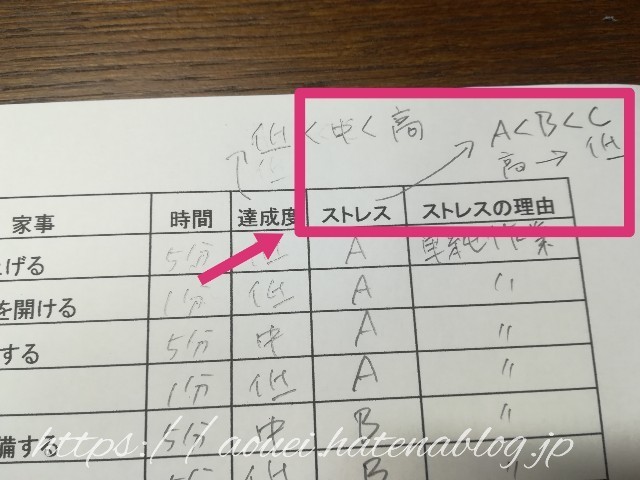 低 < 中 < 高
A < B < C
高 → 低
家事 時間 達成度 ストレス ストレスの理由
げる 5分 低 A 単純作業
を開ける 1分 低 A 〃
する 5分 中 A 〃
1分 低 A 〃
備する 5分 中 B 〃
低 B
https://aouei.hatenablog.jp